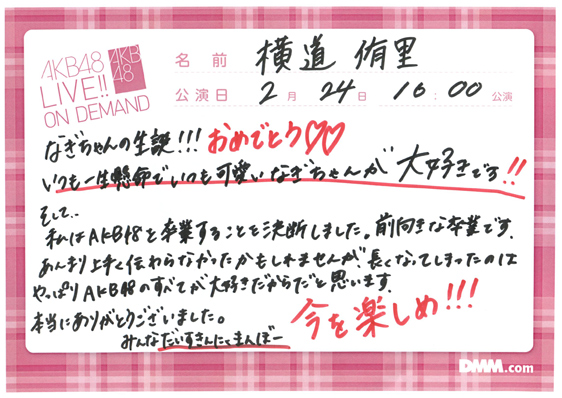 AKB48
LIVE!!
ON DEMAND
AKB
48
名前 横道 侑里
公演日 2月 24日 16:00 公演
なぎちゃんの生誕!!! おめでとう♡♡
いつも一生懸命でいつも可愛いなぎちゃんが大好きです!!
そして、、
私はAKB48を卒業することを決断しました。前向きな卒業です。
あんまり上手く伝わらなかったかもしれませんが、長くなってしまったのは
やっぱりAKB48のすべてが大好きだからだと思います。
本当にありがとうございました。
今を楽しめ!!!
みんなだいすきんにくまんぼー
DMM.com